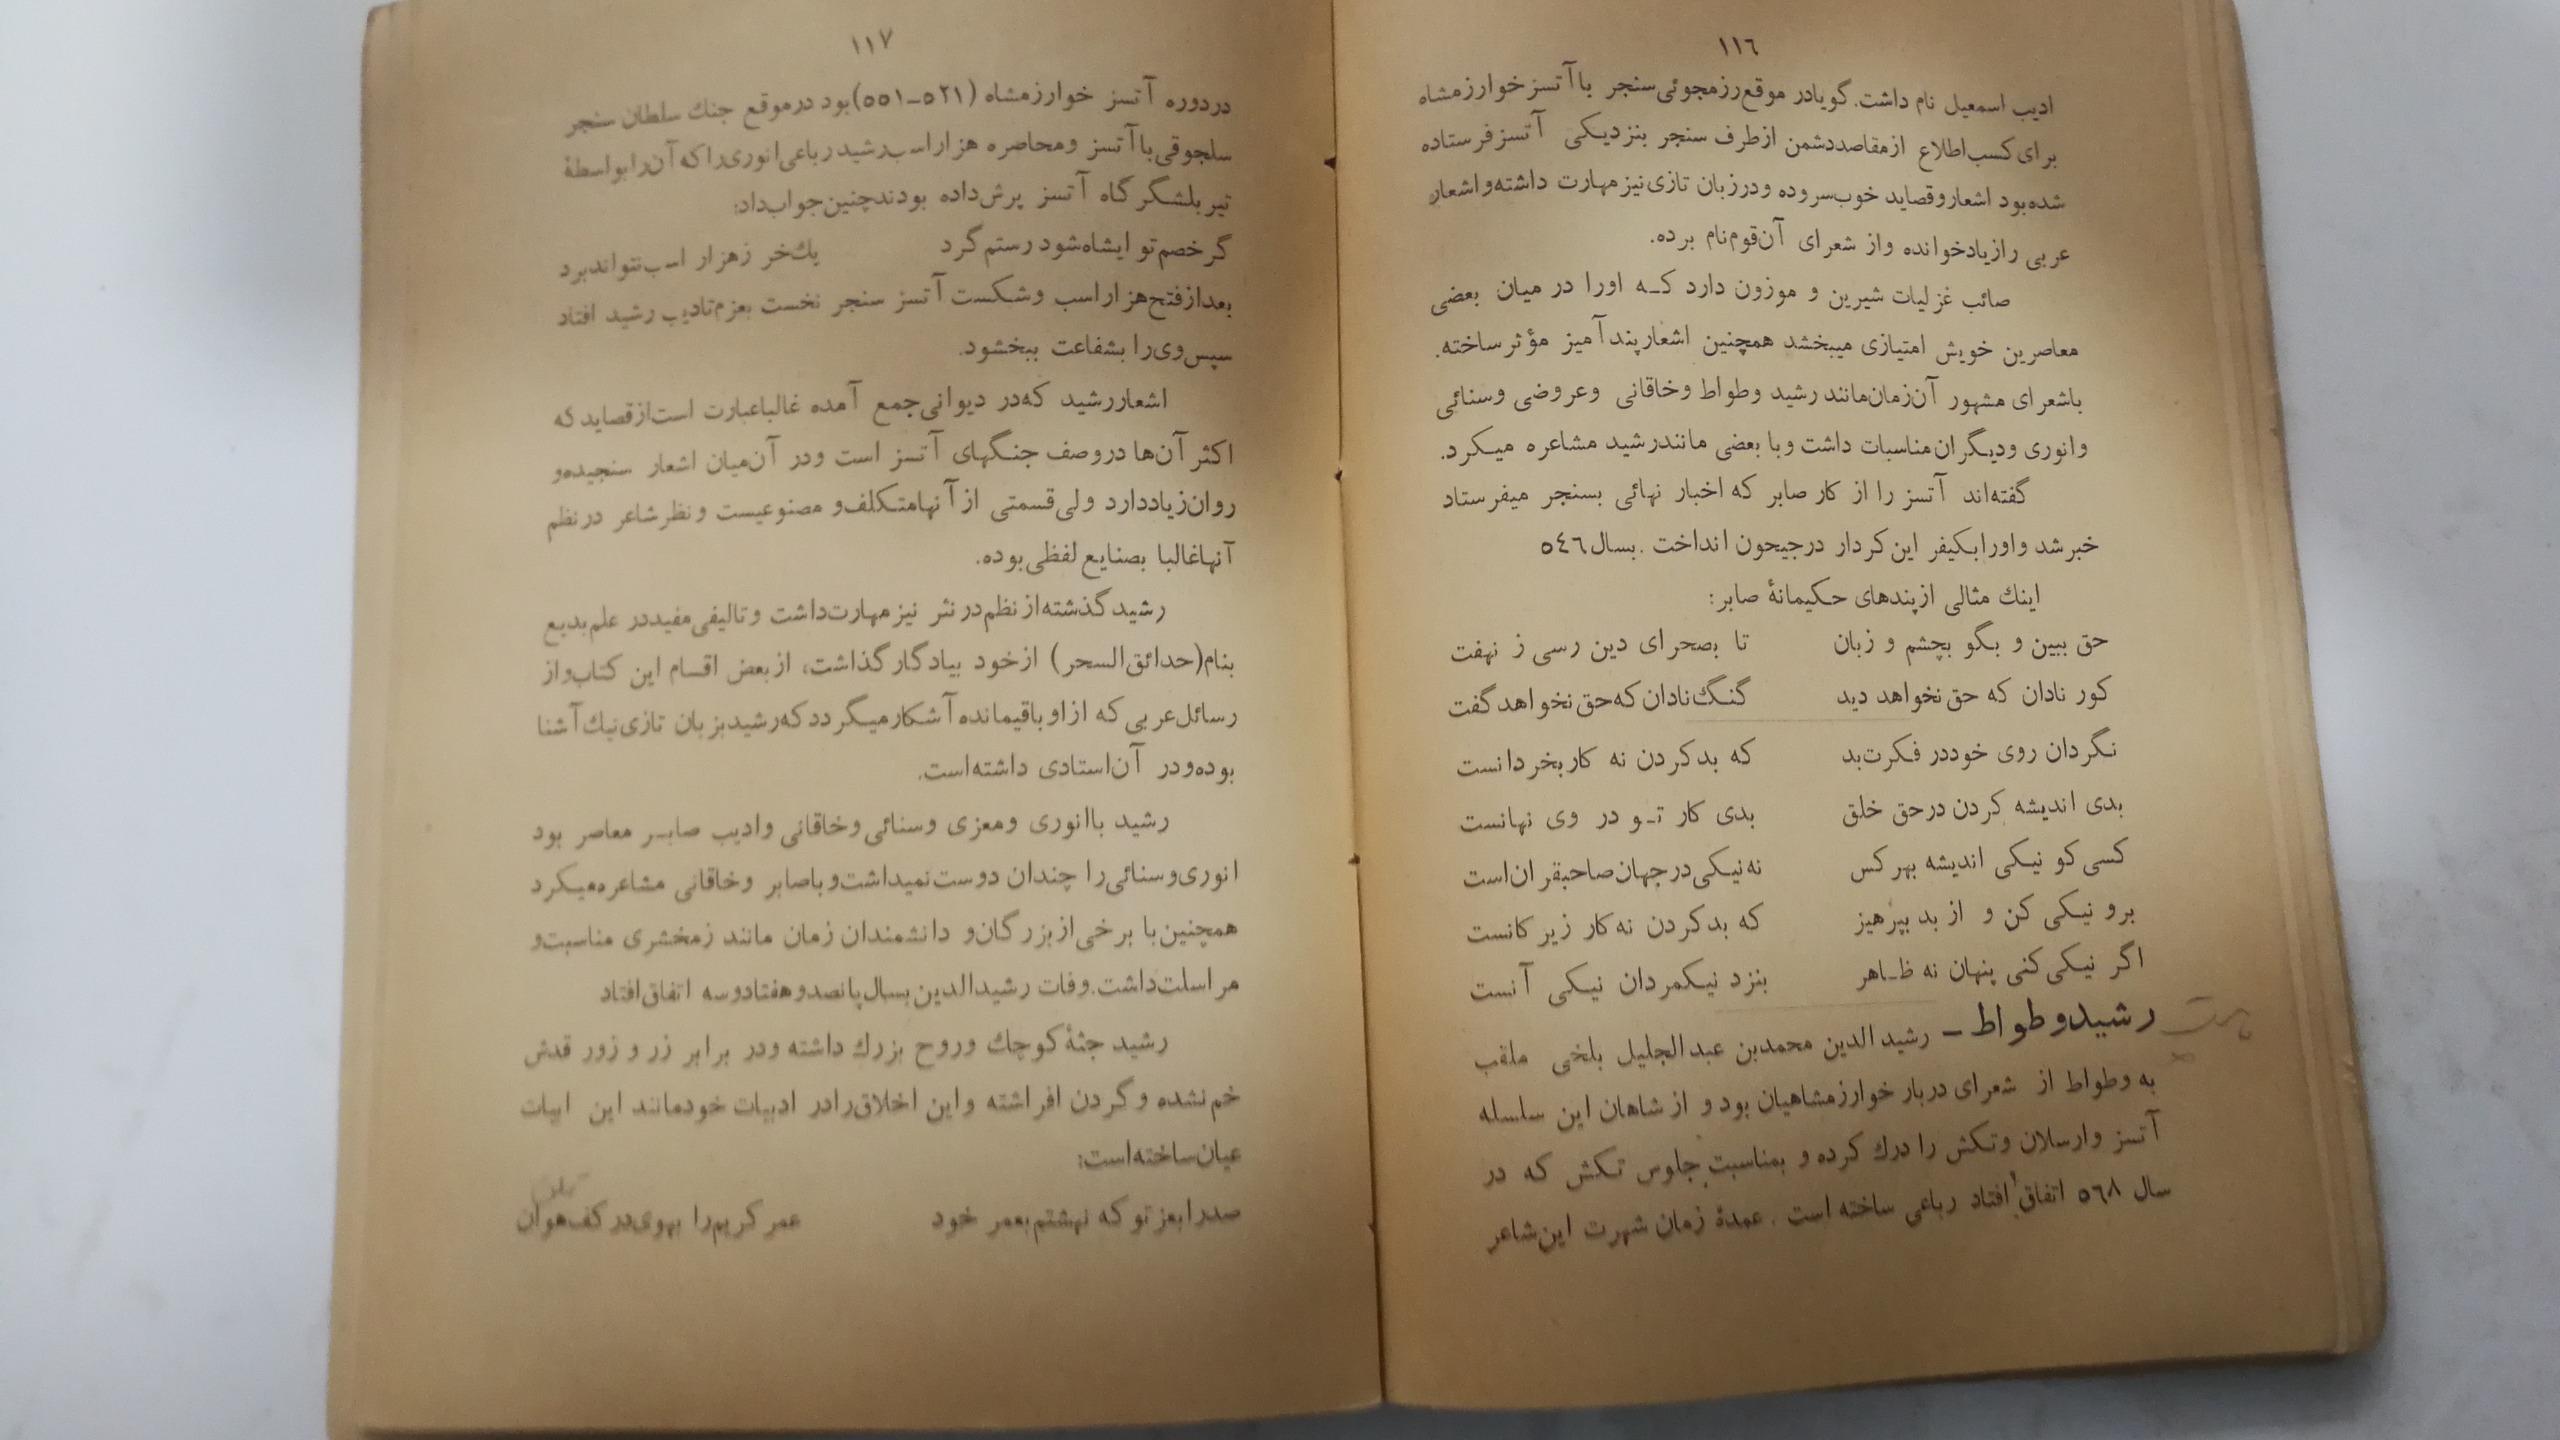 ١١٦
ادیب اسمعیل نام داشت. گویادر موقع رزمجوئی سنجر باآتسز خوارزمشاه
برای کسب اطلاع ازمقاصددشمن ازطرف سنجر بنزدیکی آتسزفرستاده
شده بود اشعاروقصاید خوب سروده ودرزبان تازی نیزمهارت داشته واشعار
عربی رازیادخوانده واز شعرای آن قوم نام برده.
صائب غزلیات شیرین و موزون دارد که اورا در میان بعضی
معاصرین خویش امتیازی میبخشد همچنین اشعارپندآمیز مؤثرساخته.
باشعرای مشهور آن زمان مانند رشید وطواط وخاقانی وعروضی وسنائی
وانوری ودیگران مناسبات داشت وبا بعضی مانندرشید مشاعره میکرد.
گفته اند آتسز را از کار صابر که اخبار نهائی بسنجر میفرستاد
خبرشد واورابکیفر این کردار درجیحون انداخت .بسال ٥٤٦
اینك مثالی ازپندهای حکیمانهٔ صابر:
حق ببین و بگو بچشم و زبان تا بصحرای دین رسی ز نهفت
کور نادان که حق نخواهد دید گنگ نادان که حق نخواهد گفت
نگردان روی خوددر فکرت بد که بدکردن نه کاربخردانست
بدی اندیشه کردن درحق خلق بدی کار تو در وی نهانست
کسی کو نیکی اندیشه بهرکس نه نیکی درجهان صاحبقران است
برو نیکی کن و از بد بپرهیز که بدکردن نه کار زیرکانست
اگر نیکی کنی پنهان نه ظاهر بنزد نیکمردان نیکی آنست
رشیدوطواط – رشیدالدین محمدبن عبدالجلیل بلخی ملقب
به وطواط از شعرای دربار خوارزمشاهیان بود و ازشاهان این سلسله
آتسز وارسلان وتکش را درك کرده و بمناسبت جلوس تکش که در
سال ٥٦٨ اتفاق افتاد رباعی ساخته است . عمدهٔ زمان شهرت این شاعر
١١٧
دردوره آتسز خوارزمشاه (٥٢١-٥٥١)بود درموقع جنك سلطان سنجر
سلجوقی باآتسز ومحاصره هزاراسب رشید رباعی انوری راکه آن رابواسطهٔ
تیر بلشگرگاه آتسز پرش داده بودندچنین جواب داد:
گر خصم تو ایشاه شود رستم گرد یك خر زهزار اسب نتواندبرد
بعدازفتح هزاراسب وشکست آتسز سنجر نخست بعزم تادیب رشید افتاد
سپس وی را بشفاعت ببخشود.
اشعاررشید که در دیوانی جمع آمده غالباعبارت است ازقصاید که
اکثر آن ها دروصف جنگهای آتسز است ودر آن میان اشعار سنجیده و
روان زیاددارد ولی قسمتی ازآنهامتکلف و مصنوعیست ونظرشاعر درنظم
آنهاغالبا بصنایع لفظی بوده.
رشید گذشته از نظم درنثر نیز مهارت داشت وتالیفی مفیددر علم بدیع
بنام(حدائق السحر) ازخود بیادگار گذاشت، ازبعض اقسام این کتاب واز
رسائل عربی که ازاو باقیمانده آشکارمیگرددکه رشیدبزبان تازی نیك آشنا
بوده ودر آن استادی داشته است.
رشید باانوری ومعزی وسنائی وخاقانی وادیب صابر معاصر بود
انوری وسنائی را چندان دوست نمیداشت وباصابر وخاقانی مشاعره میکرد
همچنین با برخی ازبزرگان و دانشمندان زمان مانند زمخشری مناسبت و
مراسلت داشت. وفات رشیدالدین بسال پانصدوهفتادوسه اتفاق افتاد
رشید جثهٔ کوچك وروح بزرك داشته ودر برابر زر و زور قدش
خم نشده وگردن افراشته واین اخلاق رادر ادبیات خودمانند این ابیات
عیان ساخته است:
صدرابعزتو که نهشتم بعمر خود عمرکریم را بهوی درکف هوان